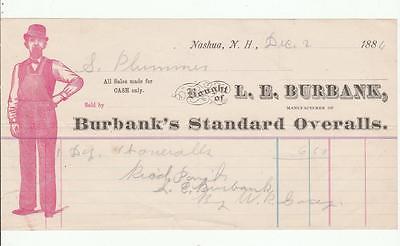 Nashua, N. H., Dec. 2 1886
S. Plummer
All Sales made for
CASH only.
Bought of L. E. BURBANK,
Sold by
MANUFACTURER OF
Burbank's Standard Overalls.
1 Doz. Overalls 6 50
Rec'd Pay't
L. E. Burbank
By W. R.